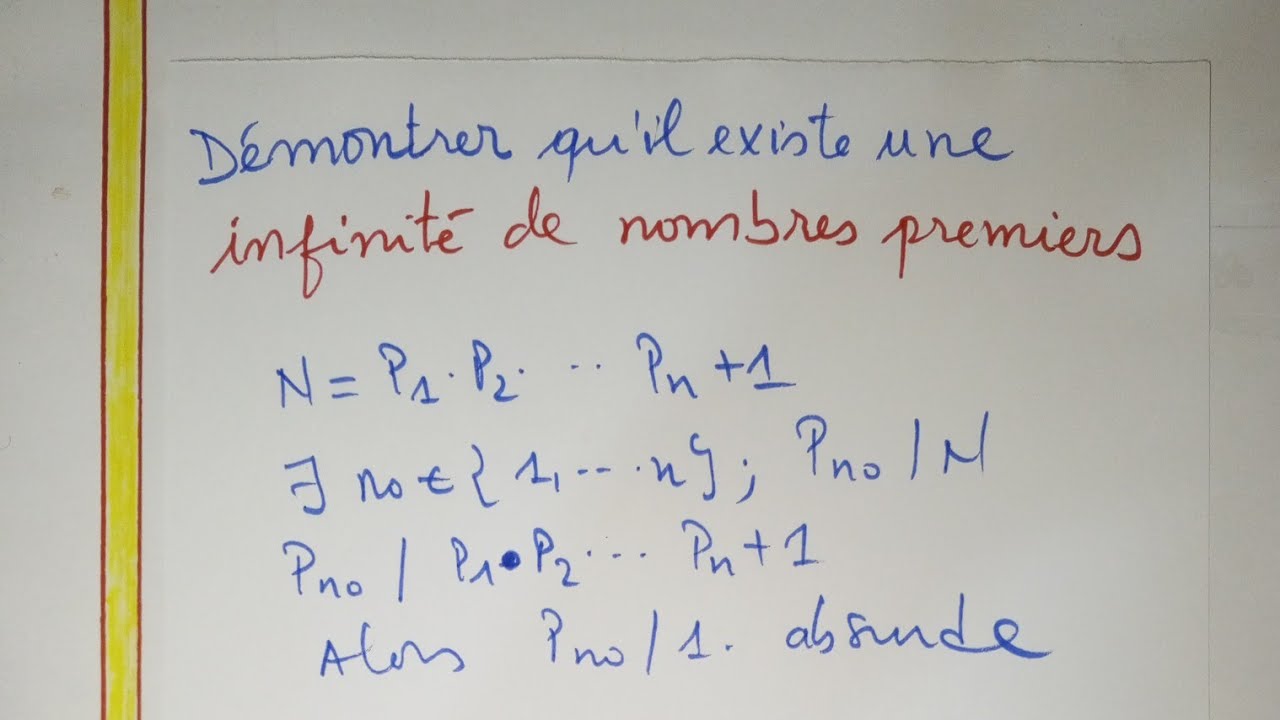 Démontrer qu'il existe une
infinité de nombres premiers
N = P₁ . P₂ . .. Pₙ + 1
∃ n₀ ∈ { 1, ... n } ; Pₙ₀ / N
Pₙ₀ / P₁ • P₂ ... Pₙ + 1
Alors Pₙ₀ / 1. absurde